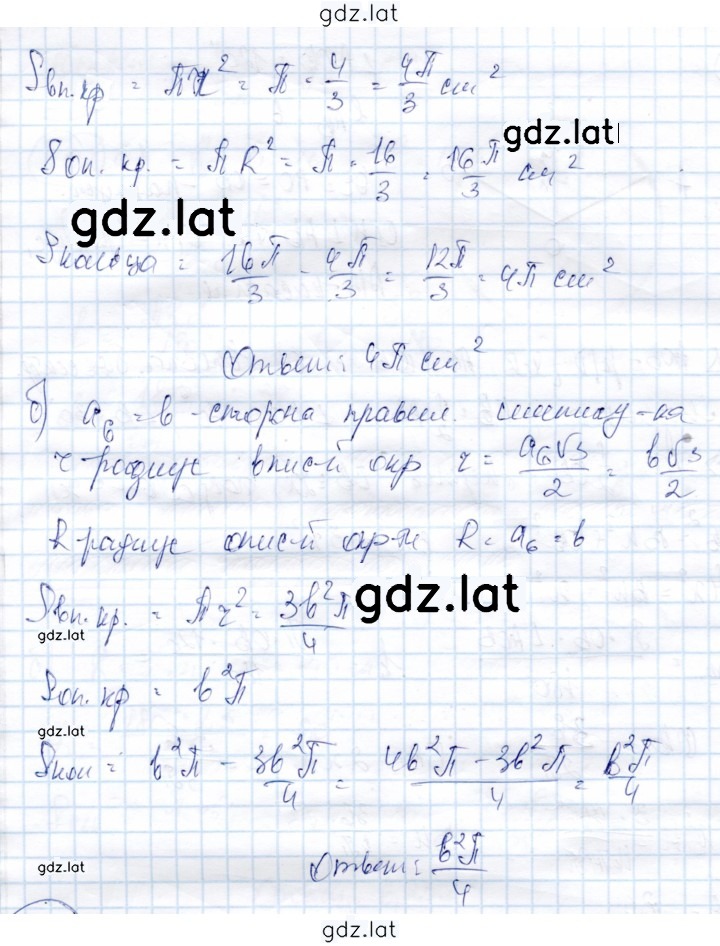 gdz.lat
Sвп. кр = πr² = π · 4/3 = 4π/3 см²
gdz.lat
Sоп. кр. = πR² = π · 16/3 = 16π/3 см²
gdz.lat
Sкольца = 16π/3 - 4π/3 = 12π/3 = 4π см²
Ответ: 4π см²
б) a₆ = b - сторона правил. шестиуг-ка
r - радиус впис-й окр r = a₆√3/2 = b√3/2
R - радиус опис-й окр-ти R = a₆ = b
Sвп. кр. = πr² = 3b²π/4
gdz.lat
gdz.lat
Sоп. кр = b²π
gdz.lat
Sкол = b²π - 3b²π/4 = 4b²π - 3b²π/4 = b²π/4
gdz.lat
Ответ: b²π/4
gdz.lat